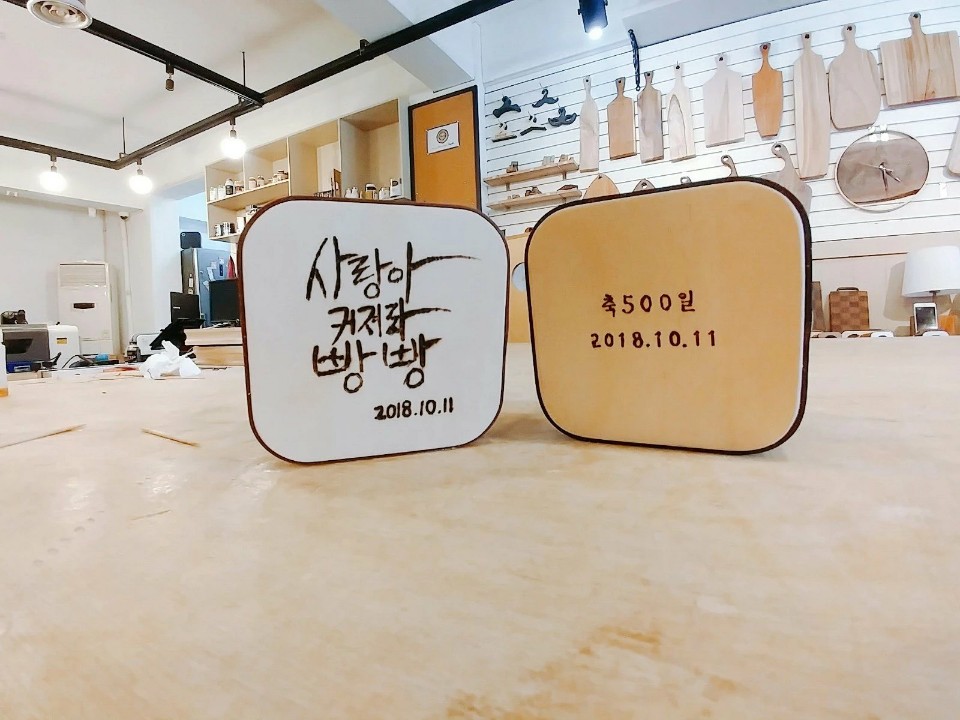 사랑아
커져라
빵빵
2018.10.11
축500일
2018.10.11